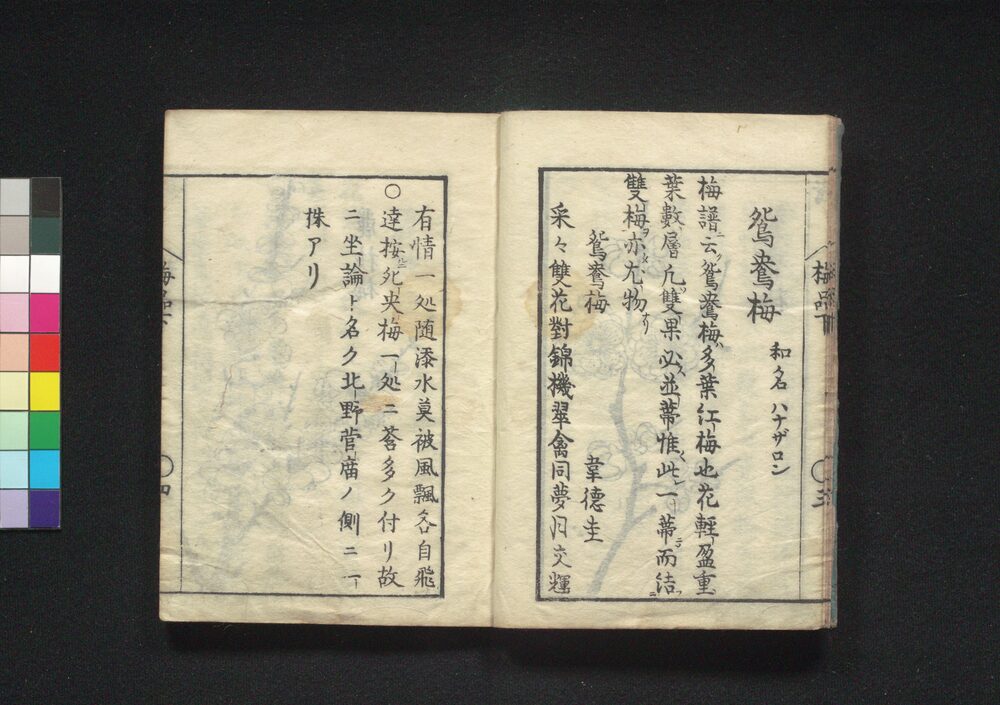 鴛鴦梅
和名 ハナザロン
梅譜ニ云ク鴛鴦梅ハ多葉紅梅也花輕盈重
葉數層凡雙果必並蒂惟此一蒂ニ而結
雙梅ヲ亦尤物ナリ
鴛鴦梅 韋德圭
采々雙花對錦機翠禽同夢月交輝
有情一処随添水莫被風飄各自飛
○達按ニ夗央梅一処ニ莟多ク付リ故
ニ坐論ト名ク北野菅庿ノ側ニ一
株アリ
梅品下
○三
○四